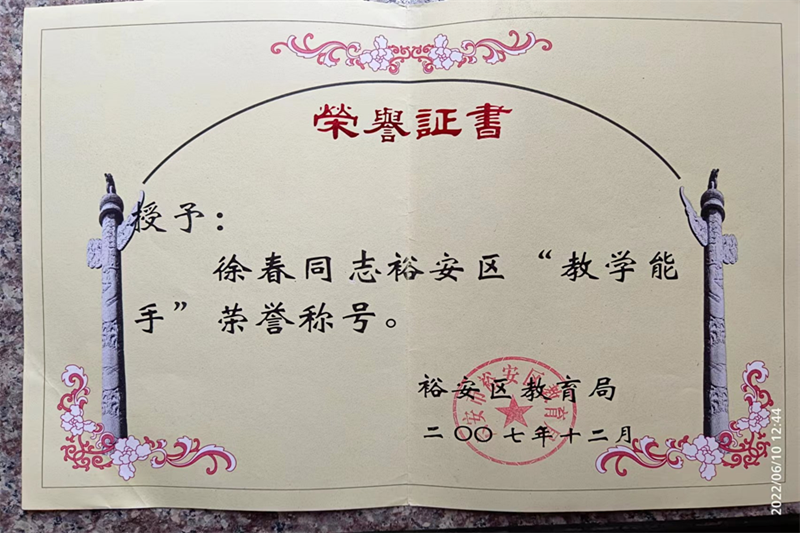 榮譽証書
授予：
徐春同志裕安区“教学能
手”荣誉称号。
裕安区教育局
二〇〇七年十二月
安市裕安区教育
2022/06/10 12:44